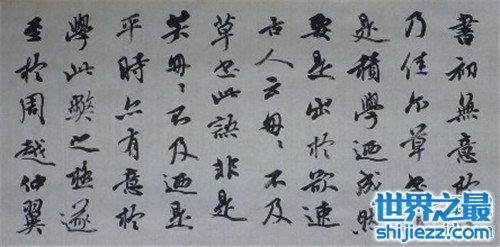 書初無意於
乃佳尔草書
是積學迺成然
要是出於欲速
古人云匆匆不及
草書此語非是
若匆匆不及迺是
平時亦有意於
學此獘之極遂
至於周越仲翼
世界之最
shijiezz.com